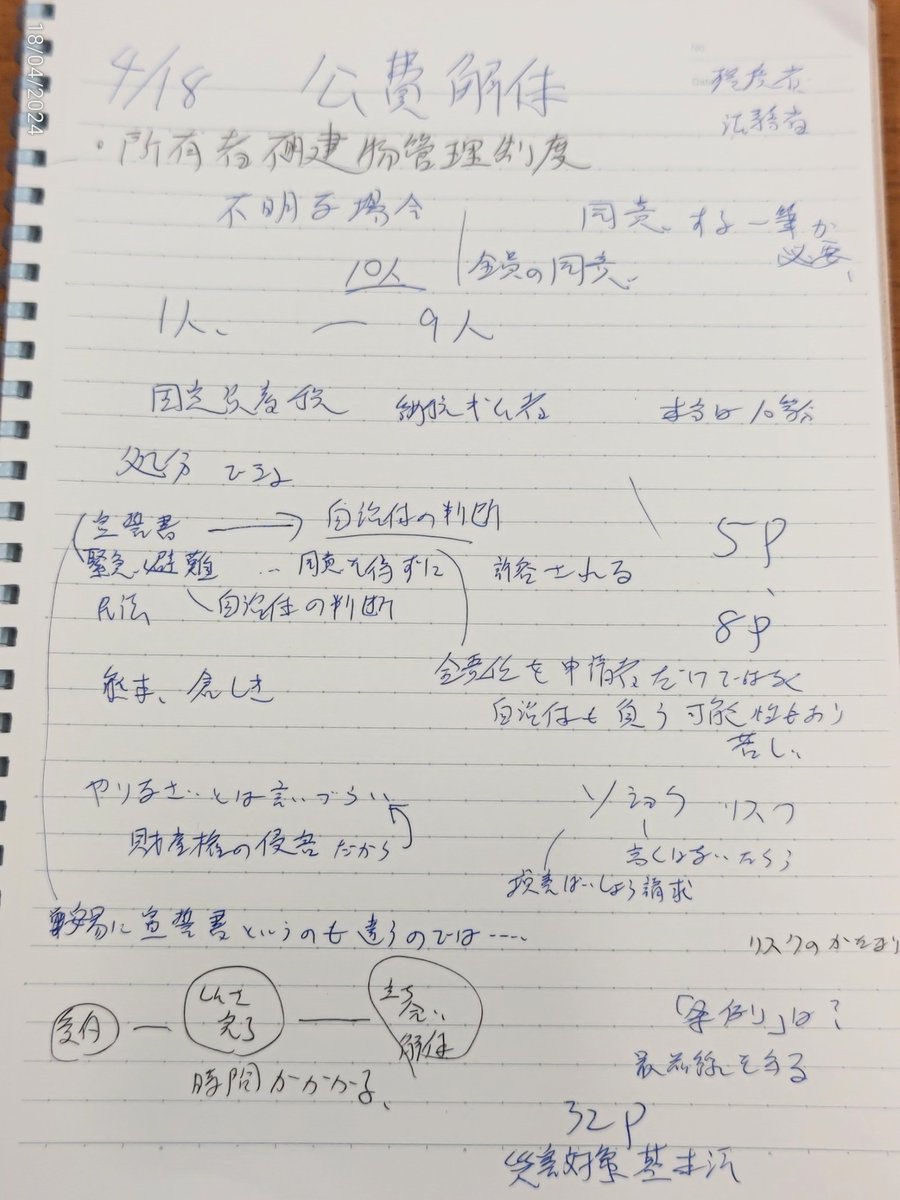 18/04/2024
4/18 公費解体
環境省
法務省
・所有者不明建物管理制度
不明な場合
同意する一筆が
必要、
10人 全員の同意、
1人、 ー 9人
固定資産税 納税する者 本当は10等分
処分できる
宣誓書 → 自治体の判断
緊急避難 … 同意を得ずに 許容される
5P
民法 自治体の判断
8P
全責任を申請者だけではなく
熊本、倉しき
自治体も負う可能性もあり
苦し、
やりなさいとは言いづらい
ソショウ リスク
財産権の侵害だから
高くはないだろう
損害ばいしょう請求
安易に宣誓書というのも違うのでは……
リスクの
受付 ー しんさ完了 ー 立ち会い解体
「条例」は?
時間かかる、
最前線を守る
32P
災害対策基本法